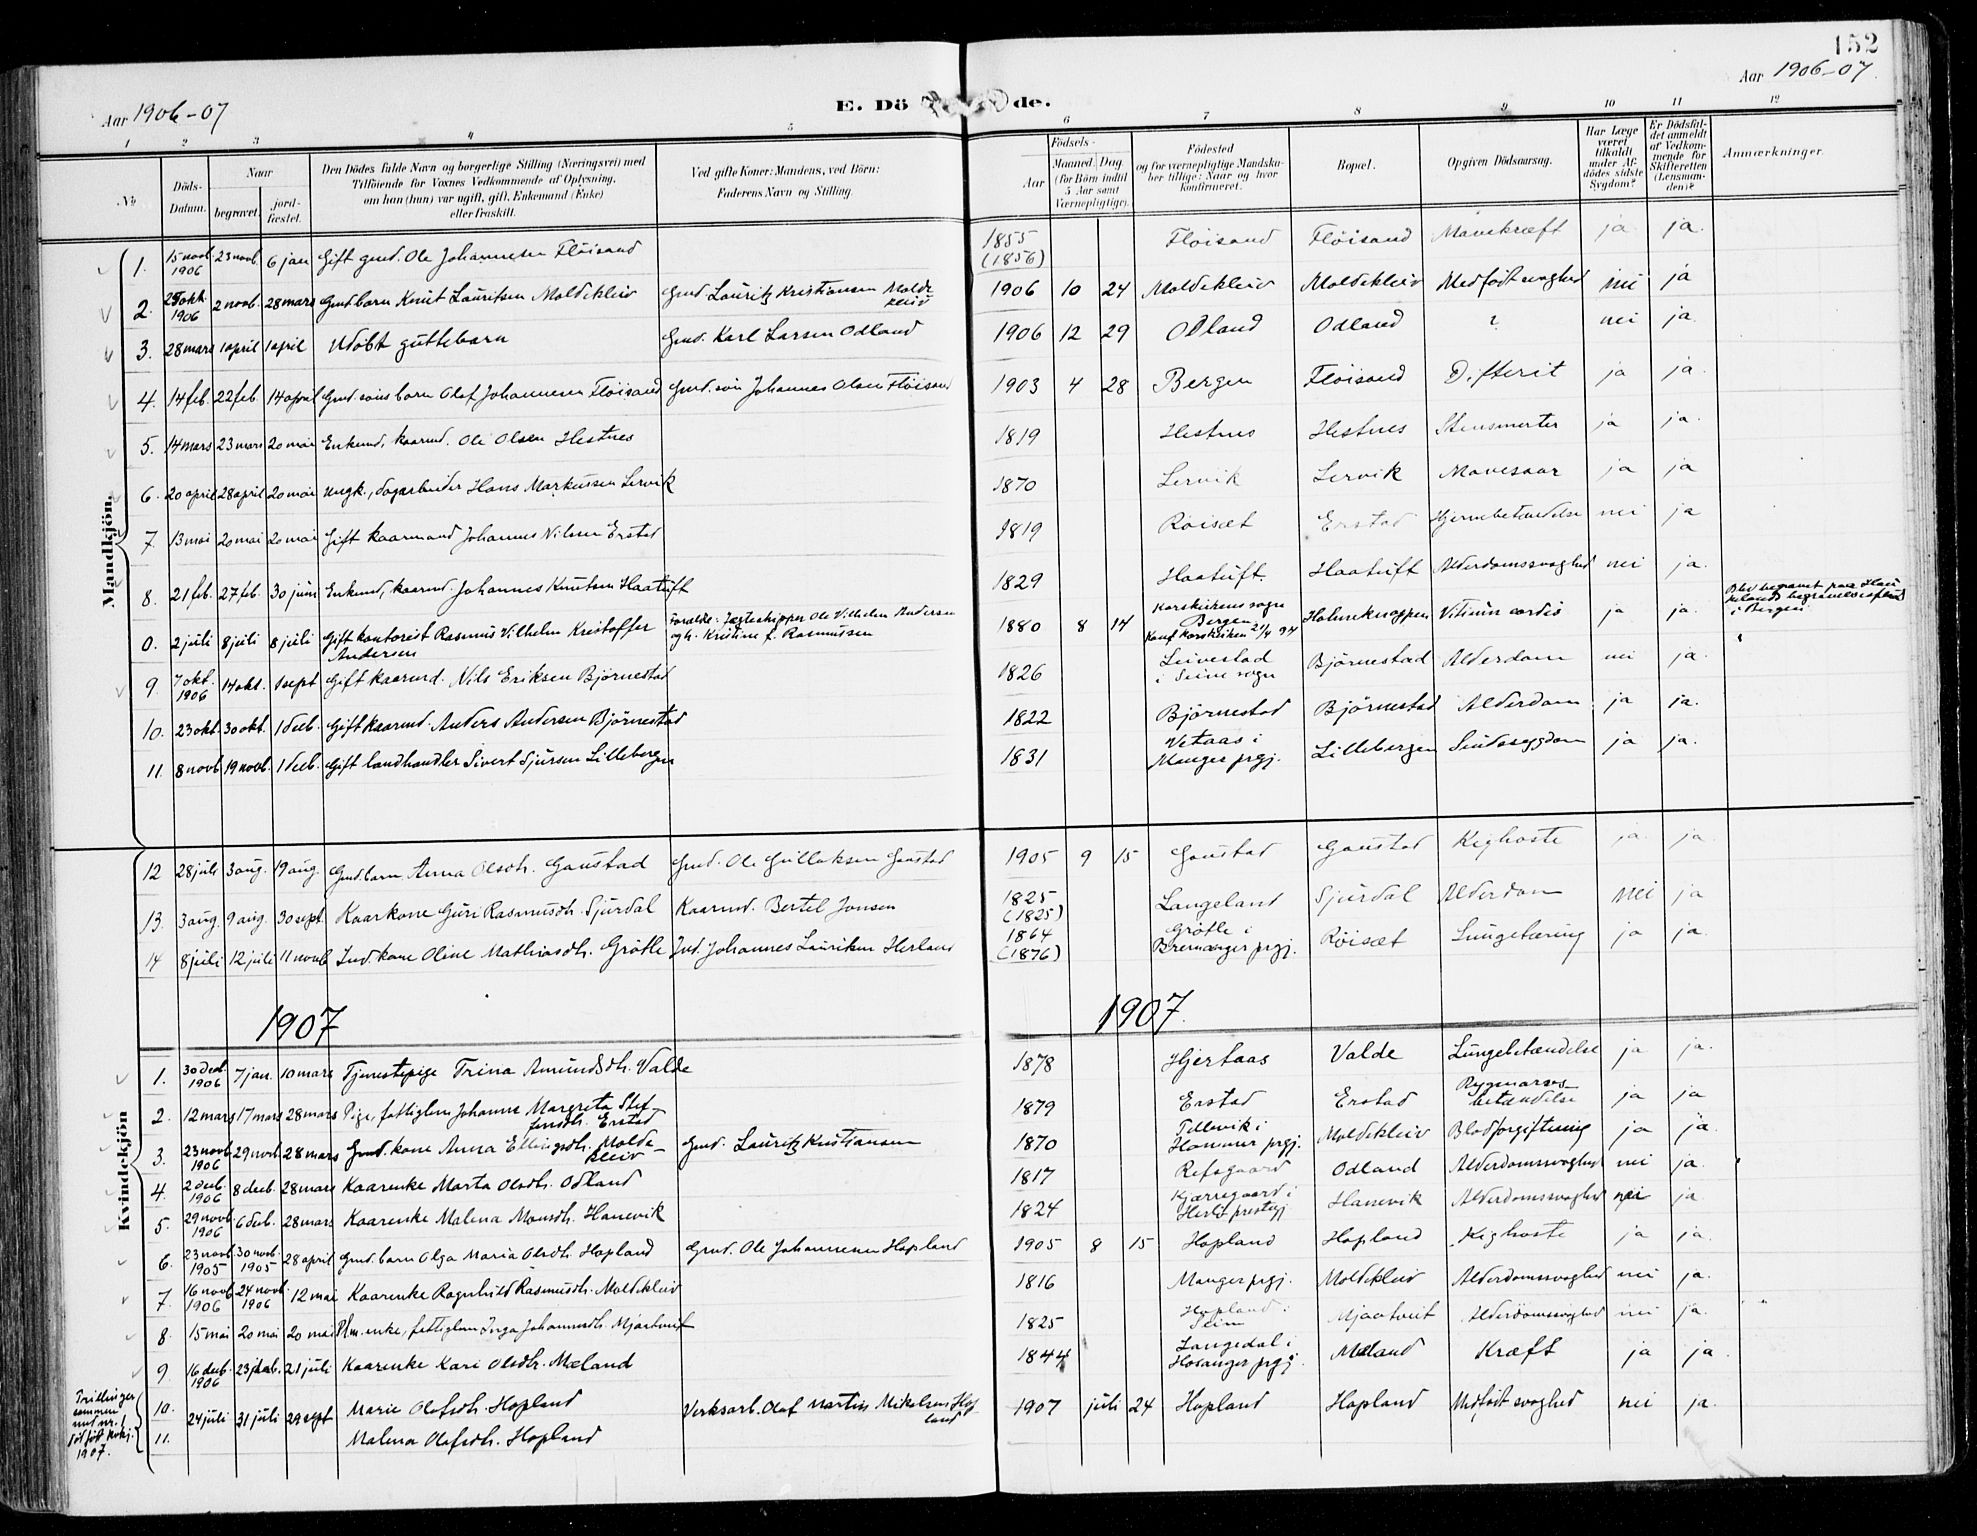 152
Aar 1906-07
Aar 1906-07
E. Dö de.
1 2 3 4 5 6 7 8 9 10 11 12
No
Döds-Datum.
Naar
begravet.
jord-fæstet.
Den Dödes fulde Navn og borgerlige Stilling (Næringsvei) med
Tilföiende for Voxnes Vedkommende af Oplysning,
om han (hun) var ugift, gift, Enkemand (Enke)
eller fraskilt.
Ved gifte Koner: Mandens, ved Börn:
Faderens Navn og Stilling.
Födsels-
Aar
Maaned. Dag
(for Börn indtil
5 Aar samt
Værnepligtige).
Födested
og for værnepligtige Mandska-
ber tillige: Naar og hvor
konfirmeret.
Bopæl.
Opgiven Dödsaarsag.
Har Læge
været
tilkaldt
under Af-
dödes sidste
Sygdom?
Er Dödsfal-
det anmeldt
af Vedkom-
mende for
Skifteretten
(Lensman-
den)?
Anmærkninger.
Mandkjön.
1. 15 novb. 1906 23 novb. 6 jan Gift gmd. Ole Johannesen Flöisand 1855 (1856) Flöisand Flöisand Mavekræft ja ja.
2. 25 okt. 1906 2 novb. 28 mars Gmd barn Knut Lauritsen Moldekleiv Gmd. Lauritz Kristiansen Moldekleiv 1906 10 24 Moldekleiv Moldekleiv Medfödt svaghed nei ja
3. 28 mars 1 april 1 april Udöbt guttebarn Gmd. Karl Larsen Odland 1906 12 29 Odland Odland ? nei ja.
4. 14 feb. 22 feb 14 april Gmd. söns barn Olaf Johannesen Flöisand Gmd. sön Johannes Olsen Flöisand 1903 4 28 Bergen Flöisand Difterit ja ja.
5. 14 mars 23 mars 20 mai Enkemd, kaarmd. Ole Olsen Hestnes 1819 Hestnes Hestnes Stensmerter ja ja.
6. 20 april 28 april 20 mai Ungk., dagarbeider Hans Markussen Lervik 1870 Lervik Lervik Mavesaar ja ja
7. 13 mai 20 mai 20 mai Gift kaarmand Johannes Nilsen Erstad 1819 Röisæt Erstad Hjernebetændelse nei ja
8. 21 feb. 27 feb. 30 juni Enkemd, kaarmd. Johannes Knutsen Haatuft 1829 Haatuft. Haatuft Alderdomssvaghed nei ja.
0. 2 juli 8 juli 8 juli Gift kontorist Rasmus Vilhelm Kristoffer Andersen Forældre: Jægteskipper Ole Vilhelm Andersen og h. Kristine f. Rasmussen 1880 8 14 Korskirkens sogn Bergen Konf Korskirken 21/4 94 Holmeknappen Vitium cordis ja ja. Blev begravet paa Haukelands begravelsesplads i Bergen
9. 7 okt. 1906 14 okt. 1 sept Gift kaarmd. Nils Eriksen Björnestad 1826 Leivestad i Seim sogn Björnestad Alderdom nei ja.
10. 23 okt. 30 okt. 1 decb. Gift kaarmd. Anders Andersen Björnestad 1822 Björnestad Björnestad Alderdom ja ja.
11. 8 novb 19 novb. 1 decb. Gift landhandler Sivert Sjursen Lillebergen 1831 Vetaas i Manger prgj. Lillebergen Sindssygdom ja ja.
12 28 juli 3 aug. 19 aug. Gmd. barn Anna Olsdtr. Gaustad Gmd. Ole Gullaksen Gaustad 1905 9 15 Gaustad Gaustad Kighoste ja. ja.
13. 3 aug. 9 aug. 30 sept. Kaarkone Guri Rasmusdtr. Sjurdal Kaarmd. Bertel Jonsen 1825 (1825) Langeland Sjurdal Alderdom nei ja
14 8 juli 12 juli 11 novb Ind. kone Oline Mathiasdtr. Grötle Ind. Johannes Lauritsen Herland 1864 (1876) Grötle i Bremanger prgj. Röisæt Lungetæring ja ja.
1907
1907.
Kvindekjön
1. 30 decb. 1906 7 jan. 10 mars Tjenestepige Trina Amundsdtr. Valde 1878 Hjertaas Valde Lungebetændelse ja ja.
2. 12 mars 17 mars 28 mars Pige, fattiglem Johanne Margreta Steffensdtr. Erstad 1879 Erstad Erstad Rygmarvsbetændelse ja ja
3. 23 novb. 1906 29 novb 28 mars Gmd. kone Anna Ellingsdtr. Moldekleiv Gmd. Lauritz Kristiansen 1870 Tellevik i Hammer prgj. Moldekleiv Blodforgiftning ja ja.
4. 2 decb. 1906 8 decb. 28 mars Kaarenke Marta Olsdtr. Odland 1817 Refsgaard Odland Alderdomssvaghed nei ja.
5. 29 novb. 1906 6 decb. 28 mars Kaarenke Malena Monsdtr. Hanevik 1824 Kjærregaard i Herlö prestgj Hanevik Alderdomssvaghed nei ja.
6. 23 novb. 1905 30 novb. 1905 28 april Gmd. barn Olga Maria Olsdtr. Hopland Gmd. Ole Johannesen Hopland 1905 8 15 Hopland Hopland Kighoste ja ja.
7. 16 novb 1906 24 novb. 1906 12 mai Kaarenke Ragnhild Rasmusdtr. Moldekleiv 1816 Manger prgj. Moldekleiv Alderdomssvaghed nei ja.
8. 15 mai 20 mai 20 mai Plm. enke, fattiglem Inga Johannesdtr. Mjaatveit 1825 Hopland i Seim Mjaatveit Alderdomssvaghed nei ja.
9. 16 decb. 1906 23 decb. 21 juli Kaarenke Kari Olsdtr. Mæland 1844 Langedal i Hosanger prgj. Mæland Kræft ja ja.
10. 24 juli 31 juli 29 sept Marie Olafsdtr. Hopland Verksarb. Olaf Martin Mikelsen Hopland 1907 juli 24 Hopland Hopland Medfödt svaghed nei ja.
11. Malena Olafsdtr. Hopland
Trillinger
sammen
med nr. 1
dödfödt kvkj.
1907.